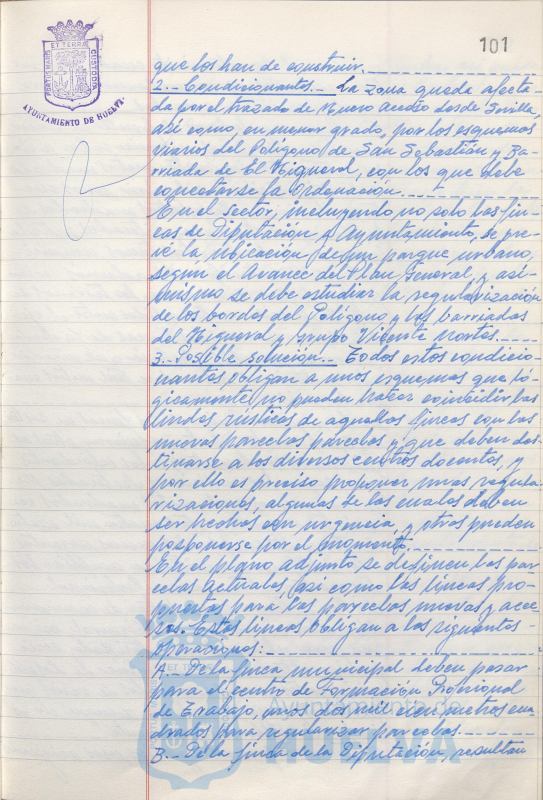 101
PORTUS MARIS
ET TERRAE
CUSTODIA
AYUNTAMIENTO DE HUELVA
que los han de construir.
2.- Condicionantes.- La zona queda afecta-
da por el trazado de Nuevo Acceso desde Sevilla,
así como, en menor grado, por los esquemas
viarios del Polígono de San Sebastián y Ba-
rriada de El Higueral, con los que debe
conectarse la ordenación.
En el sector, incluyendo no solo las fin-
cas de Diputación y Ayuntamiento, se pre-
vé la ubicación de un parque urbano,
segun el Avance del Plan General, y asi-
mismo se debe estudiar la regularización
de los bordes del Polígono y las barriadas
del Higueral y Grupo Vicente Hortas.
3.- Posible solución.- Todos estos condicio-
nantes obligan a unos esquemas que ló-
gicamente no pueden tratar coincidir las
lindes rústicas de aquellas fincas con las
nuevas parcelas parcelas y que deben des-
tinarse a los diversos centros docentes, y
por ello es preciso proponer unas regula-
rizaciones, algunas de las cuales deben
ser hechas con urgencia, y otras pueden
posponerse por el momento.
En el plano adjunto se definen las par-
celas actuales, así como las líneas pro-
puestas para las parcelas nuevas y acce-
sos. Estas líneas obligan a las siguientes
operaciones:
A.- De la finca municipal deben pasar
para el centro de Formación Profesional
de Trabajo, unos dos mil cien metros cua-
drados para regularizar parcelas.
B.- De la finca de la Diputación, resultan